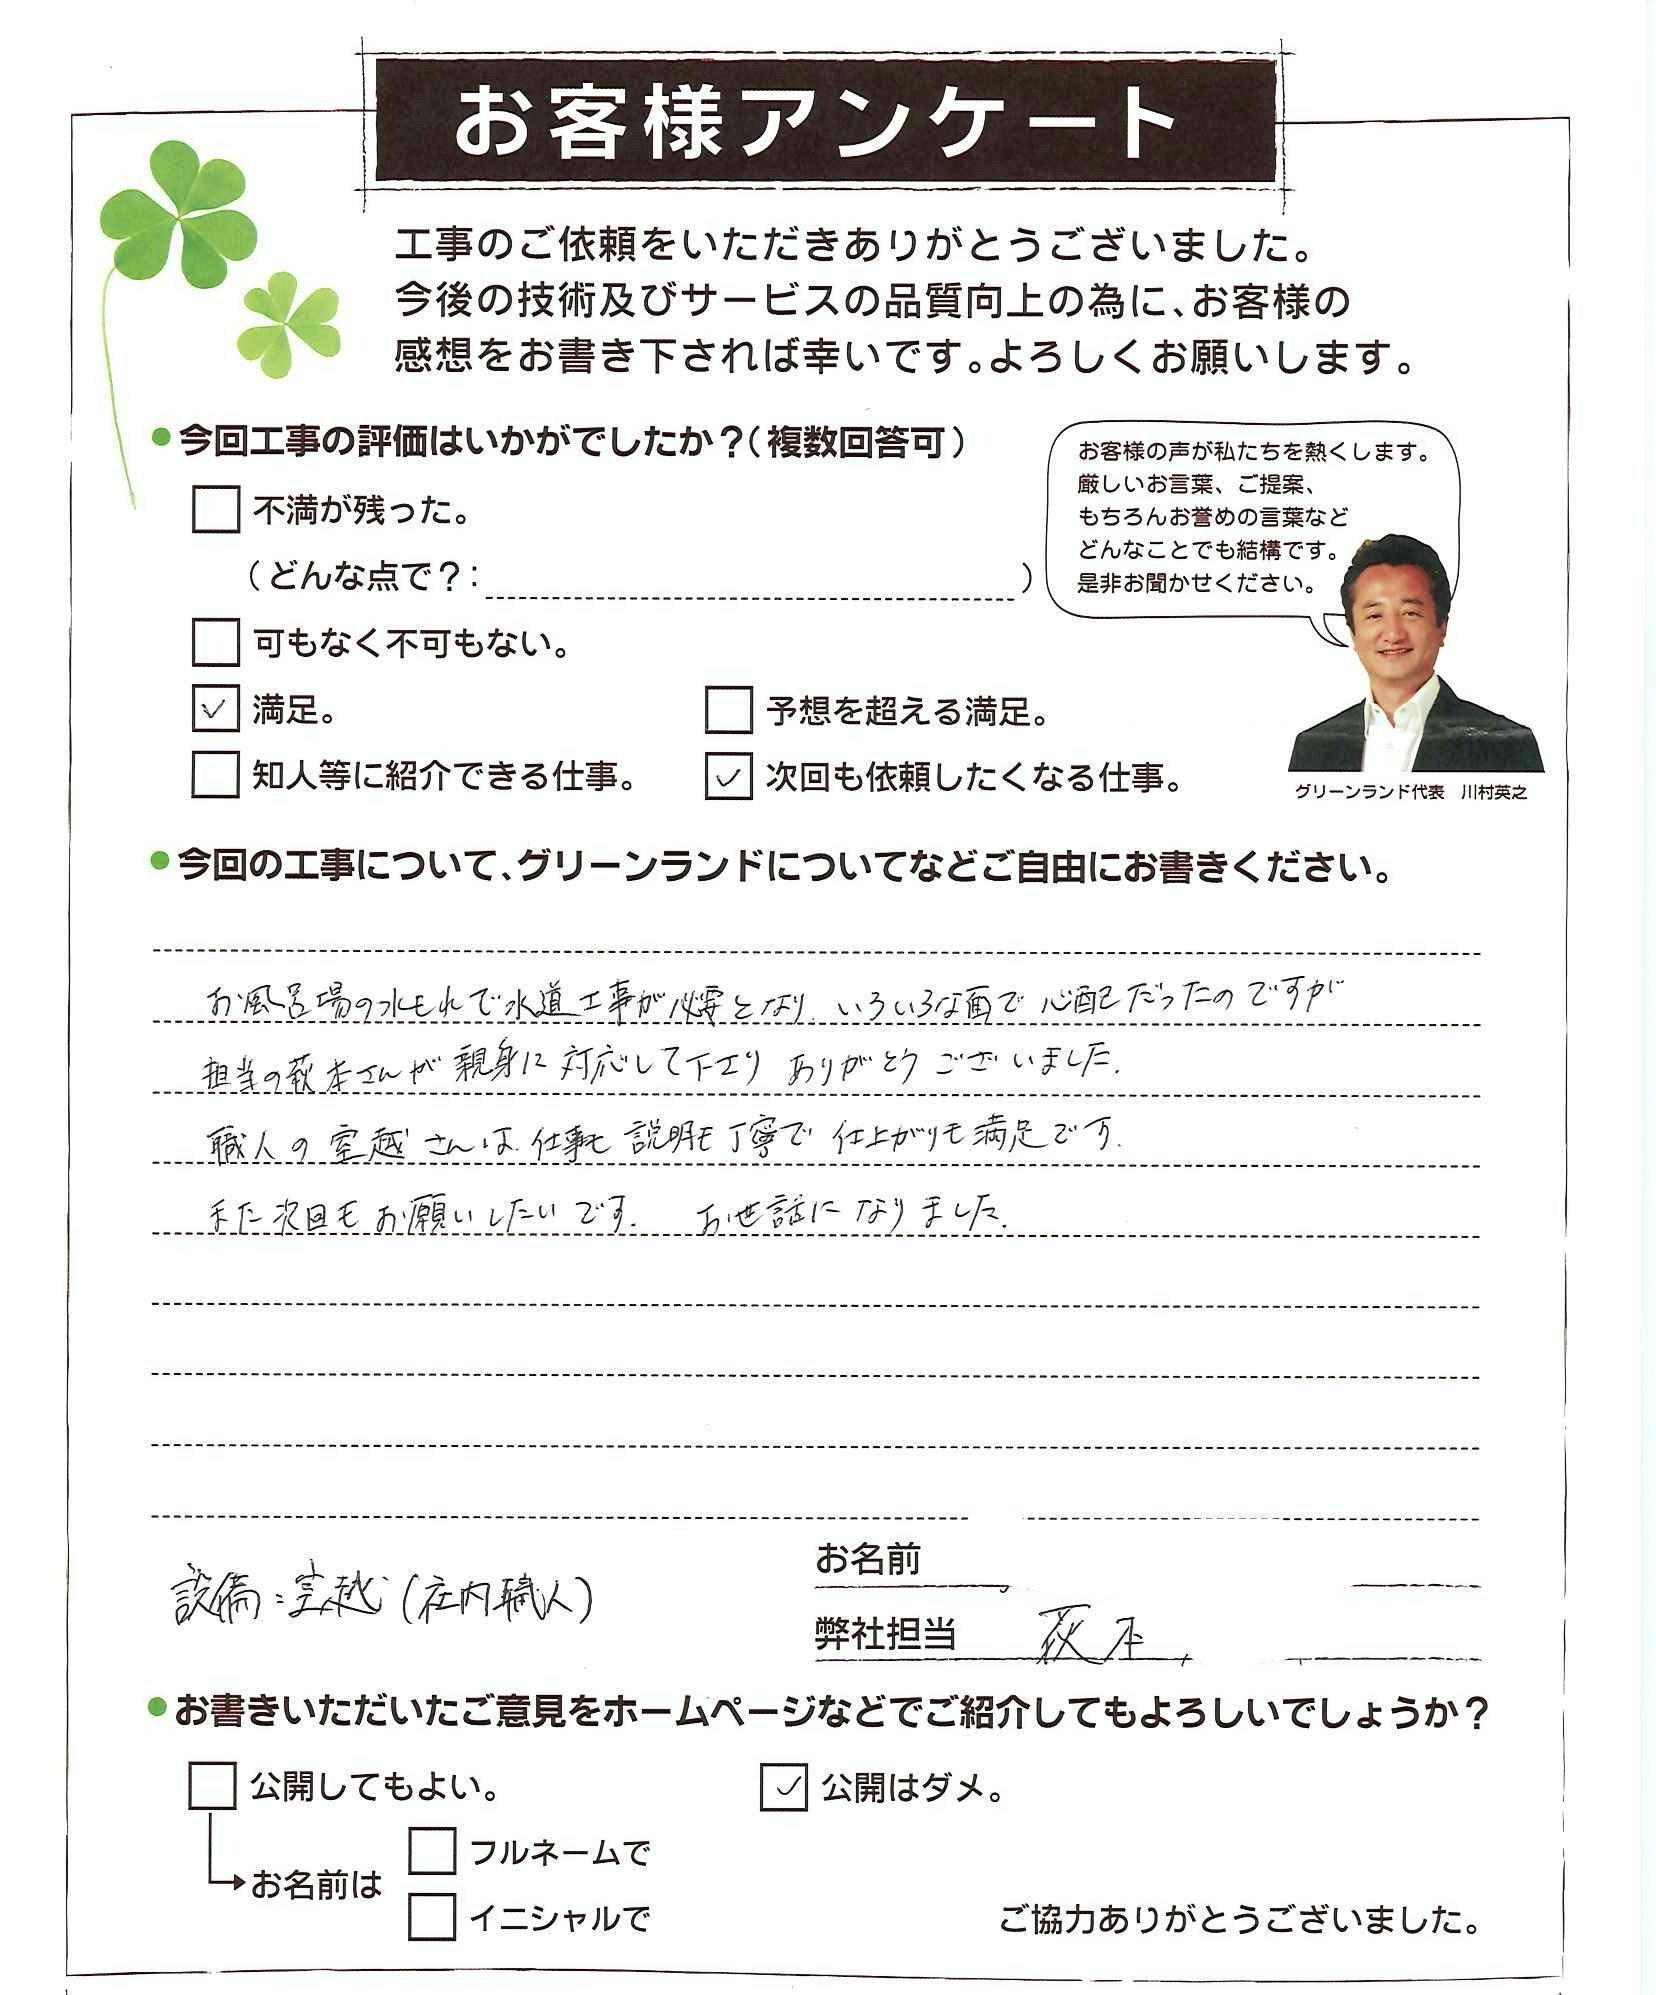 お客様アンケート
工事のご依頼をいただきありがとうございました。
今後の技術及びサービスの品質向上の為に、お客様の
感想をお書き下されば幸いです。よろしくお願いします。
●今回工事の評価はいかがでしたか?(複数回答可)
不満が残った。
(どんな点で?: )
可もなく不可もない。
満足。
予想を超える満足。
知人等に紹介できる仕事。
次回も依頼したくなる仕事。
お客様の声が私たちを熱くします。
厳しいお言葉、ご提案、
もちろんお誉めの言葉など
どんなことでも結構です。
是非お聞かせください。
グリーンランド代表 川村英之
●今回の工事について、グリーンランドについてなどご自由にお書きください。
お風呂場の水もれで水道工事が必要となり、いろいろな面で心配だったのですが
担当の萩本さんが親身に対応して下さり ありがとうございました.
職人の室越さんは 仕事も説明も丁寧で 仕上がりも満足です.
また次回もお願いしたいです. お世話になりました.
設備:室越(社内職人)
お名前
弊社担当 萩本
●お書きいただいたご意見をホームページなどでご紹介してもよろしいでしょうか?
公開してもよい。
公開はダメ。
お名前は
フルネームで
イニシャルで
ご協力ありがとうございました。